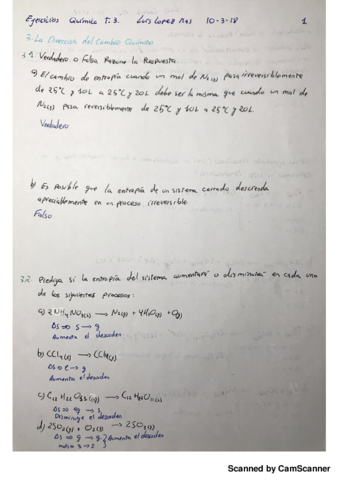 Ejercicios Química T.3. Luis López Mas 10-3-18 1
3. La Dirección del Cambio Químico
3.1. Verdadero o Falso Razone la Respuesta
a) El cambio de entropía cuando un mol de N₂(g) pasa irreversiblemente
de 25°C y 10L a 25°C y 20L debe ser la misma que cuando un mol de
N₂(g) pasa reversiblemente de 25°C y 10L a 25°C y 20L.
Verdadero
b) Es posible que la entropía de un sistema cerrado descienda
apreciablemente en un proceso irreversible
Falso
3.2 Prediga si la entropía del sistema aumentará o disminuirá en cada uno
de los siguientes procesos:
a) 2NH₄NO₃(s) → N₂(g) + 4H₂O(g) + O₂(g)
s → g
Aumenta el desorden
b) CCl₄(l) → CCl₄(g)
l → g
Aumenta el desorden
c) C₁₂H₂₂O₁₁(aq) → C₁₂H₂₂O₁₁(s)
aq → s
Disminuye el desorden
d) 2SO₂(g) + O₂(g) → 2SO₃(g)
g → g Aumenta el desorden
moles 3 → 2
Scanned by CamScanner